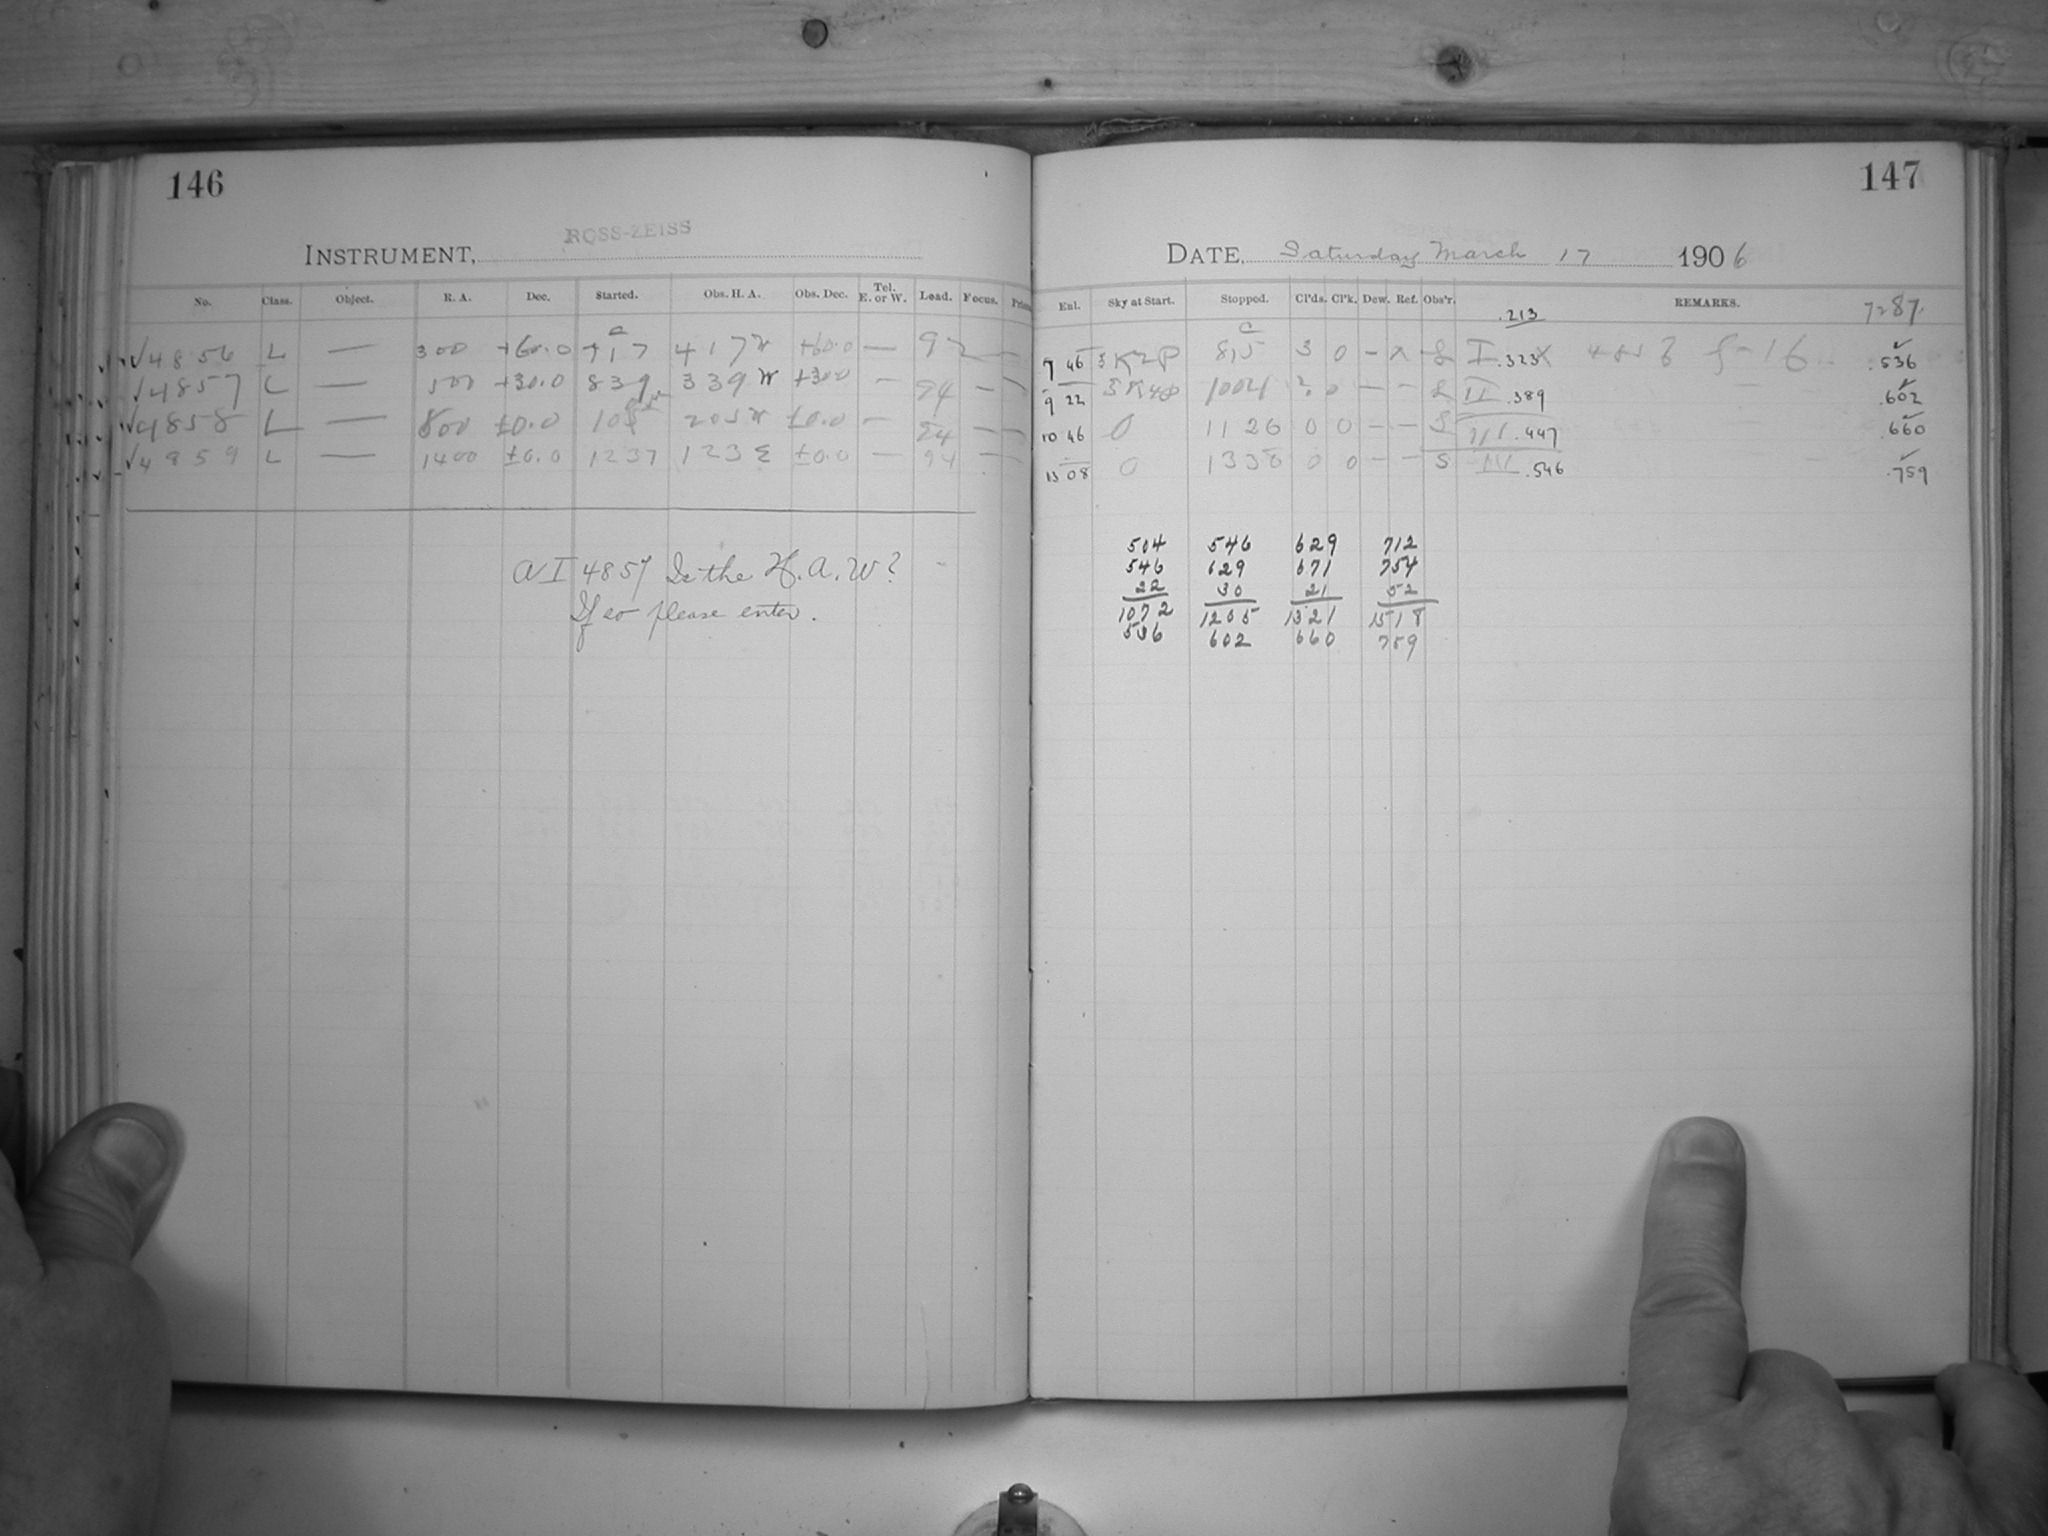 146
ROSS-ZEISS
INSTRUMENT,
No. Class. Object. R. A. Dec. Started. Obs. H. A. Obs. Dec. Tel. E. or W. Load. Focus.
√4856 L — 300 +60.0 717 417 W +60.0 — 92 —
√4857 L — 500 +30.0 839 339 W +30.0 — 94 — —
√4858 L — 800 ±0.0 205 W ±0.0 — 94 — —
√4859 L — 1400 ±0.0 1237 123 E ±0.0 — 94 — —
AI 4857 Is the H.A. W?
If so please enter.
147
DATE, Saturday March 17 1906
Enl. Sky at Start. Stopped. Cl'ds. Cl'k. Dew. Ref. Obs'r. REMARKS.
.213 7287.
7 46 815 3 0 — I .323 .536
9 22 1004 0 — — II .389 .602
10 46 0 1126 0 0 — — S III .447 .660
13 08 0 1338 0 0 — — S IV .546 .759
504 546 629 712
546 629 671 754
22 30 21 52
1072 1205 1321 1518
536 602 660 759